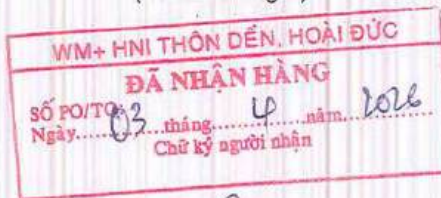 WM+ HNI THÔN DẾN, HOÀI ĐỨC
ĐÃ NHẬN HÀNG
SỐ PO/TO:
Ngày.......03...tháng........4........năm...2026
Chữ ký người nhận